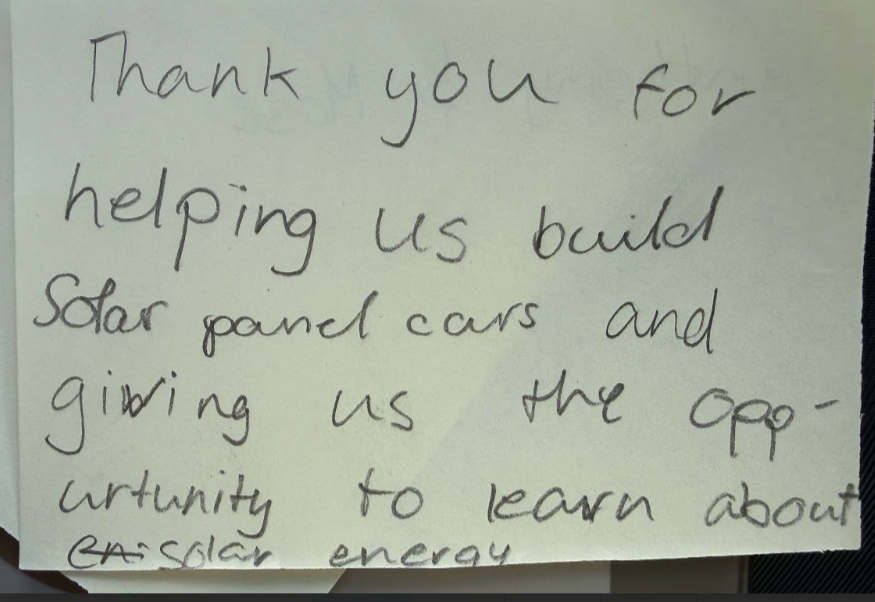 Thank you for
helping us build
Solar panel cars and
giving us the opp-
urtunity to learn about
solar energy